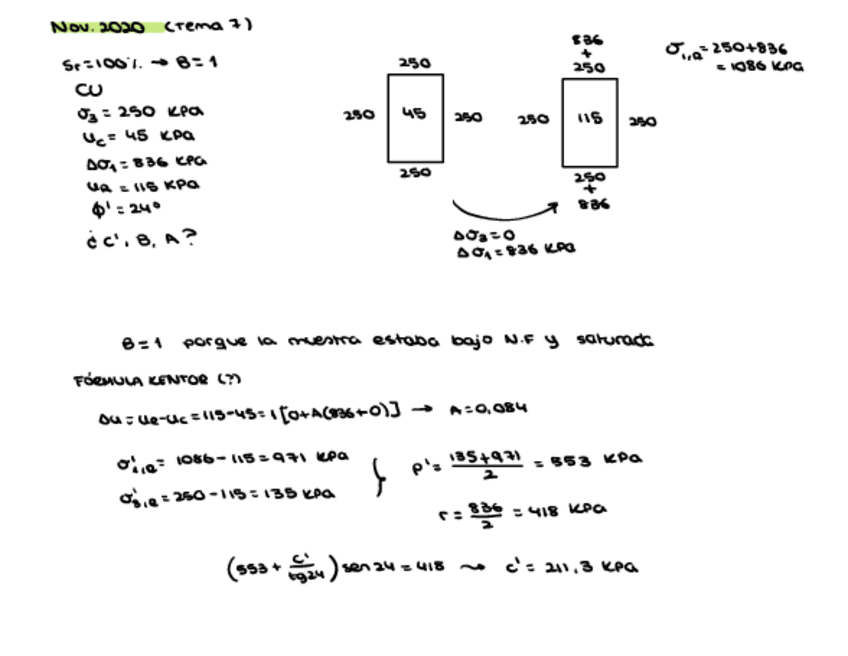 Nov. 2020 (Tema 7)
Sr=100% → B=1
CU
σ3 = 250 KPa
uc = 45 KPa
Δσ1 = 836 KPa
uR = 115 KPa
ϕ' = 24º
¿C', B, A?
250
250 45 250
250
836
+
250
250 115 250
250
+
836
Δσ3=0
Δσ1=836 KPa
σ1,R=250+836
=1086 KPa
B=1 porque la muestra estaba bajo N.F y saturada
FÓRMULA KENTOR (?)
Δu=uR-uc=115-45=1[0+A(836+0)] → A=0,084
σ'1,R= 1086-115=971 KPa
σ'3,R=250-115=135 KPa
p'= 135+971 / 2 = 553 KPa
r= 836 / 2 = 418 KPa
(553+ c' / tg24) sen 24=418 ⤳ c'= 211,3 KPa